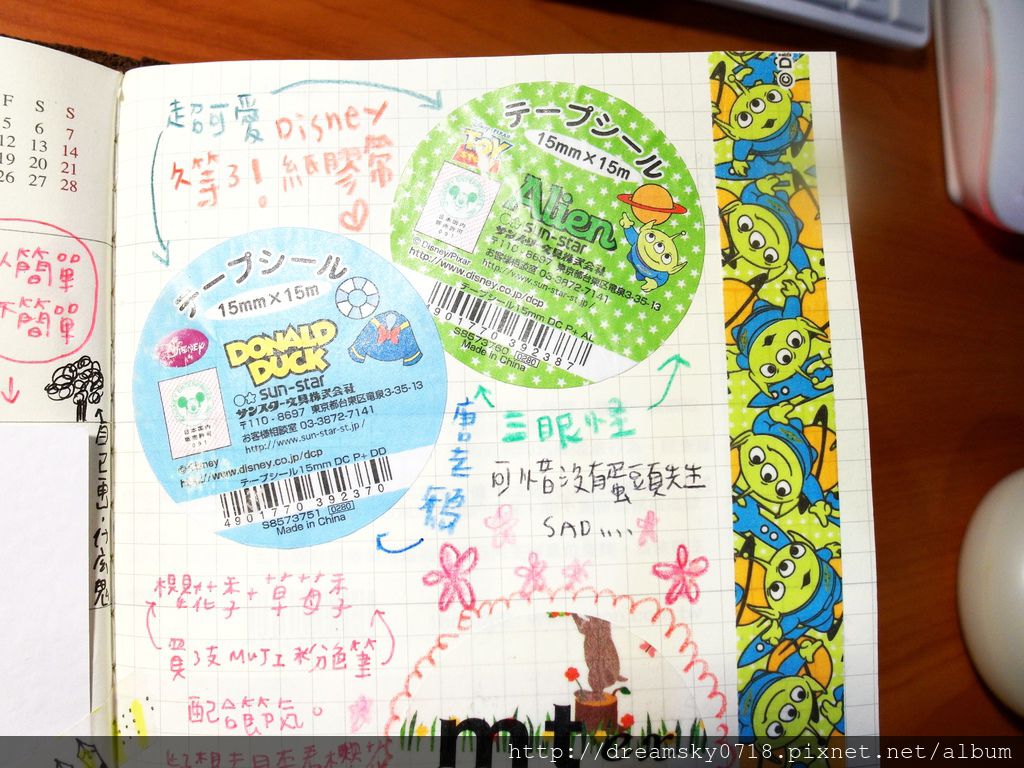 F S S
5 6 7
12 13 14
19 20 21
26 27 28
簡單
不簡單
超可愛 Disney
久等了! 紙膠帶
テープシール
15mm×15m
TOY
Alien
sun-star
サンスター文具株式会社
〒110-8697 東京都台東区竜泉3-35-13
お客様相談室 03-3872-7141
http://www.sun-star-st.jp/
日本国内
販売許可
091
©Disney/Pixar
http://www.disney.co.jp/dcp
テープシール15mm DC P+ AL
4901770 392387
S8573760 0280
Made in China
©Di
テープシール
15mm×15m
DISNEY
DONALD
DUCK
sun-star
サンスター文具株式会社
〒110-8697 東京都台東区竜泉3-35-13
お客様相談室 03-3872-7141
http://www.sun-star-st.jp/
日本国内
販売許可
091
©Disney
http://www.disney.co.jp/dcp
テープシール15mm DC P+ DD
4901770 392370
S8573751 0280
Made in China
唐老鴨
三眼怪
可惜沒有蛋頭先生
SAD.....
自己畫
櫻花季+草莓季
買了3支MUJI粉色筆
配合節氣。
mt
http://dreamsky0718.pixnet.net/album